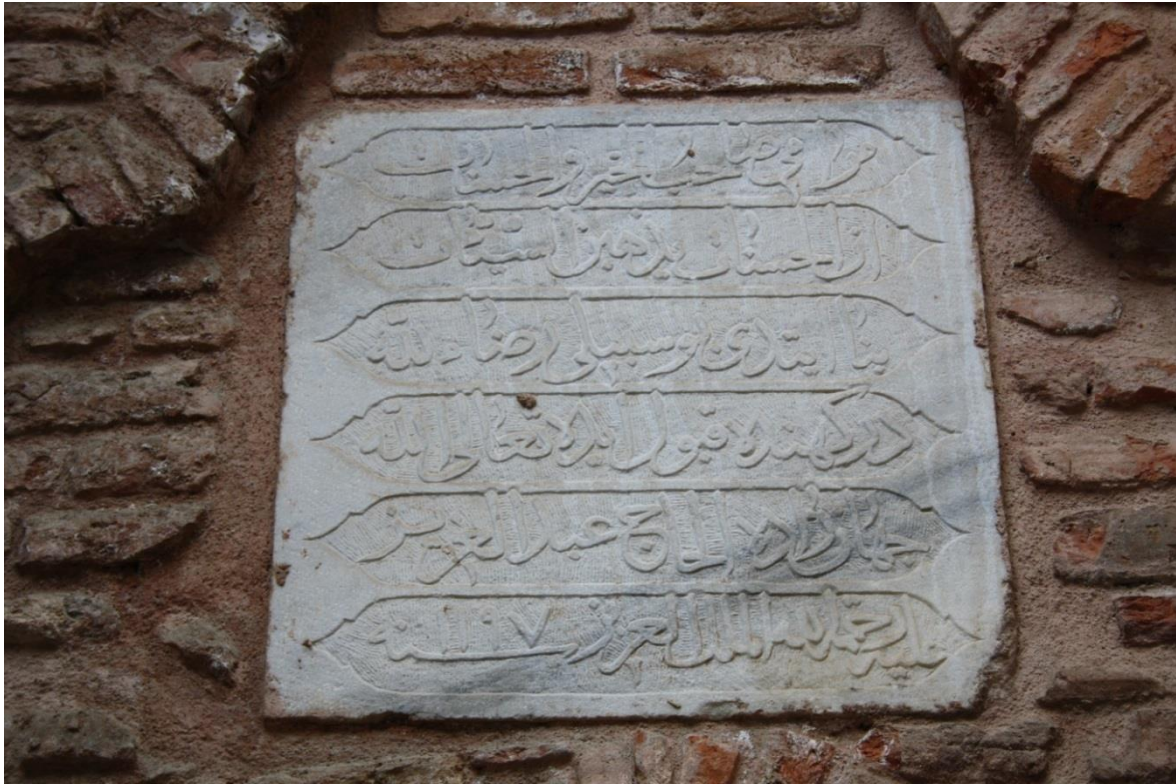 صاحب الخير والحسنات
ان الحسنات يذهبن السيئات
بنا ايتدى رضاء لله
دركهنده قبول ايده تعالى الله
زاده الحاج عبد العزيز
عليه رحمة الملك العزيز سنة